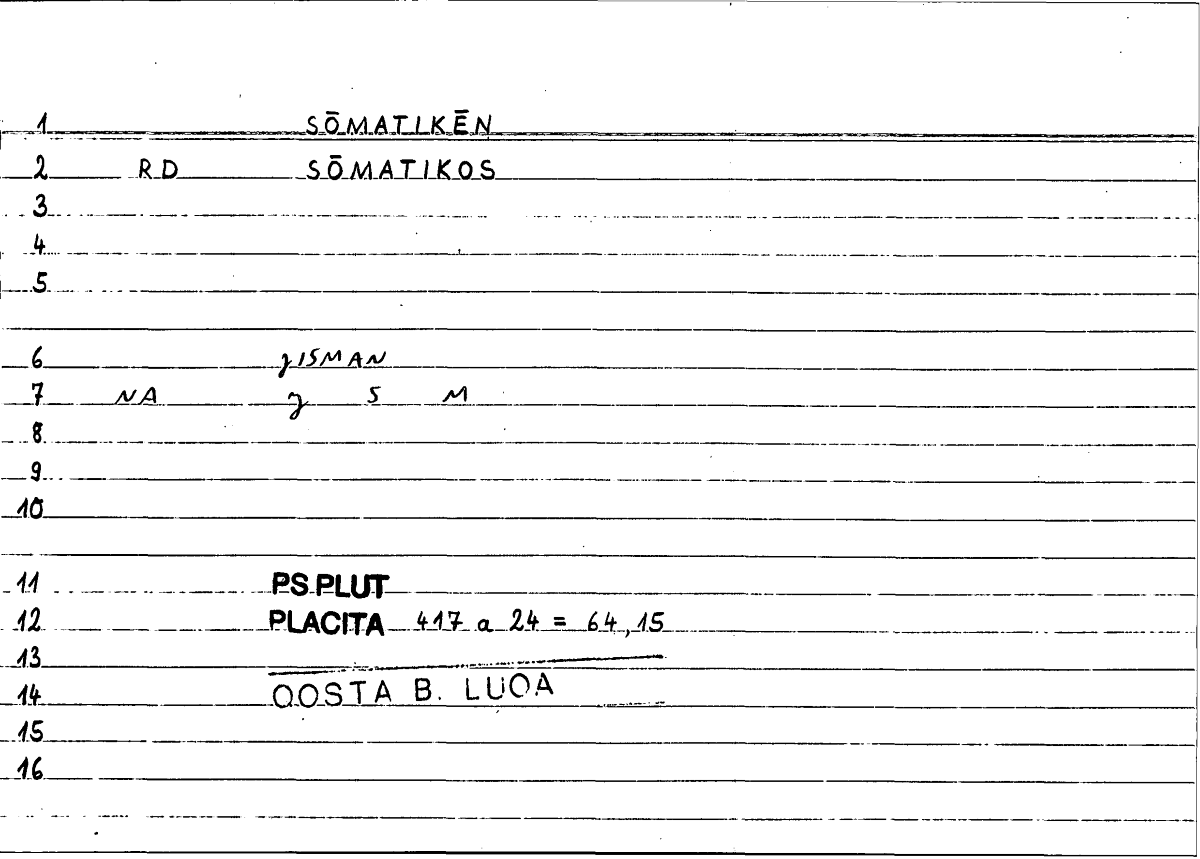 1 SŌMATIKĒN
2 RD SŌMATIKOS
3
4
5
6 ʒISMAN
7 NA ʒ S M
8
9
10
11 PS PLUT
12 PLACITA 417 a 24 = 64,15
13
14 QOSTA B. LUQA
15
16